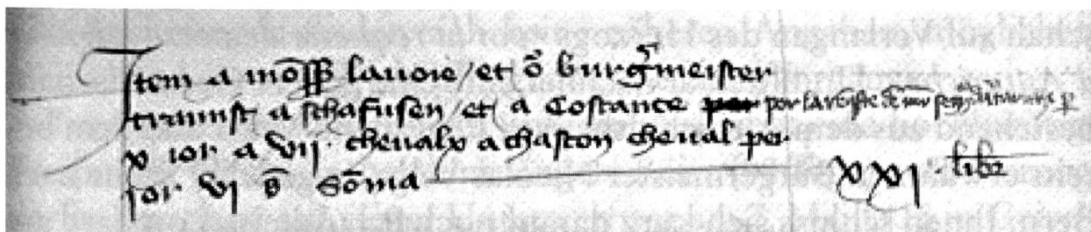 Item a moss lavoie / et o burgmeister
tramist a schafusen / et a Costance per por
x ior a vij · chevalx a chascon cheval per
ior vj s soma xxj · libr